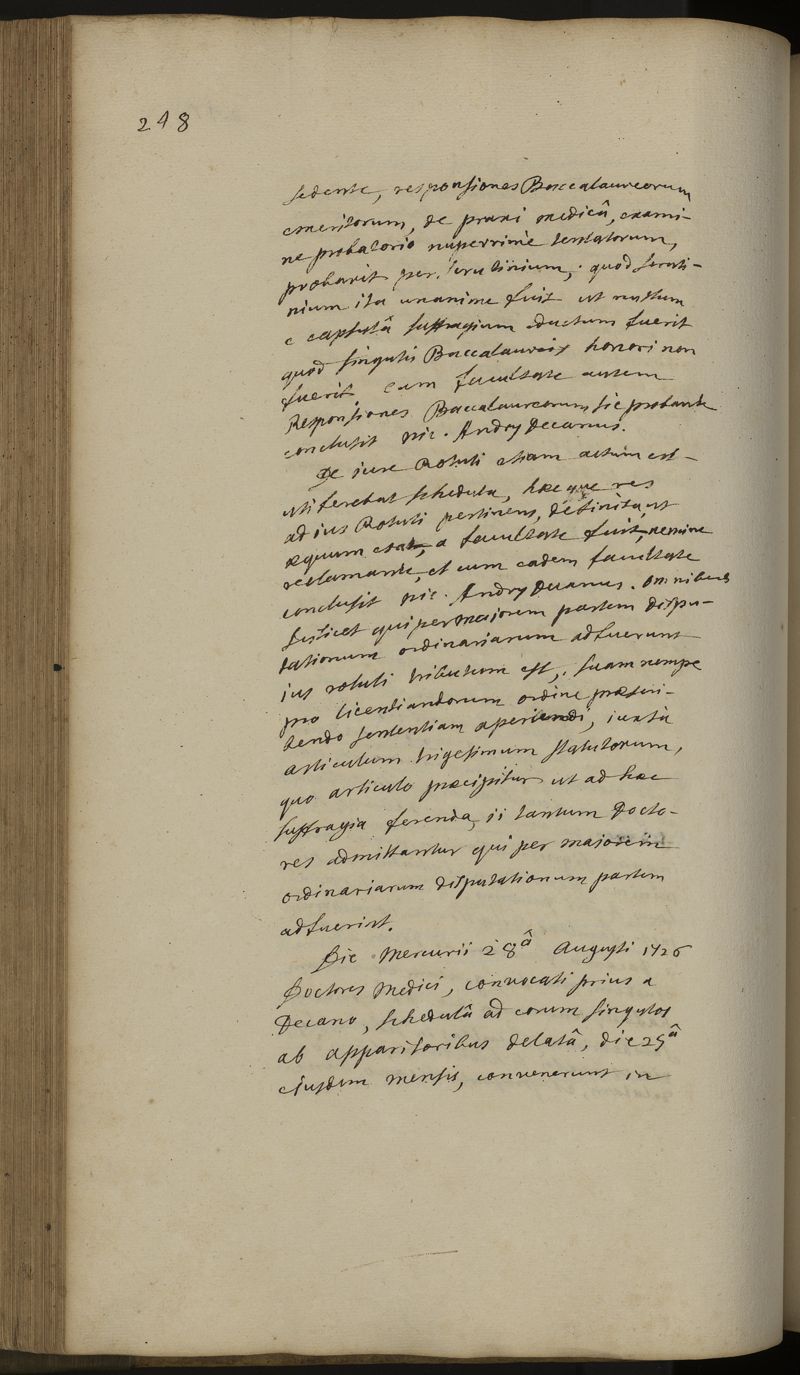 248
sedente, responsiones Baccalaureorum
emeritorum, de praxi medicâ, exami-
ne probatorio nuperrimè tentatorum,
probarit per scrutinium; quod scruti-
nium ita unanime fuit ut nullum
e capsulâ suffragium eductum fuerit
quod singulis Baccalaureis honori non
fuerit, cum facultate autem
Responsiones Baccalaureorum sic probante
conclusit nic. Andry Decanus.
De jure Rotuli etiam actum est
uti ferebat schedula, hæcque res
ad ius Rotuli pertinens, definita, ut
æquum erat, a facultate fuit, nemine
reclamante, et cum eadem facultate
conclusit nic. Andry Decanus. omnibus
scilicet qui per majorem partem dispu-
tationum ordinariarum adfuerunt
jus rotuli tributum est, suam nempe
pro licentiandorum ordine præscri-
bendo sententiam aperiendi, iuxta
articulum trigesimum statutorum,
quo articulo præcipitur ut ad hæc
suffragia ferenda, ii tantum Docto-
res admittantur qui per majorem
ordinariarum disputationum partem
adfuerint.
Die Mercurii 28â Augusti 1726
Doctores Medici, convocati prius a
Decano, schedulâ ad eorum singulos
ab apparitoribus delatâ, die 25â
ejusdem mensis, convenerunt in